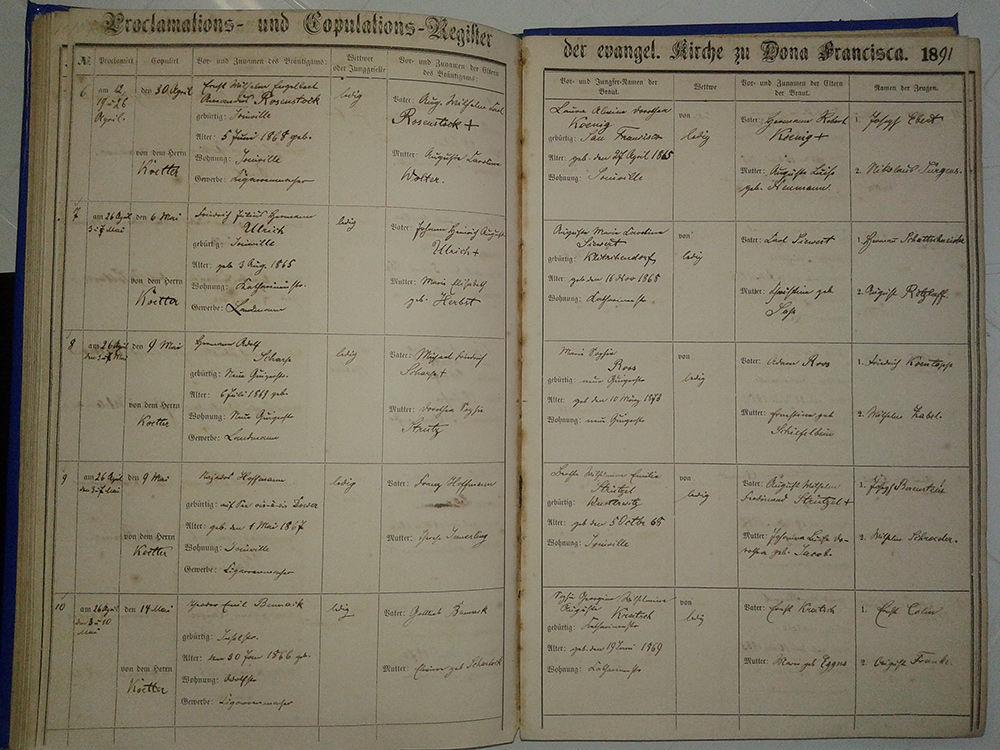 Proclamations- und Copulations-Register
der evangel. Kirche zu Dona Francisca. 1891
№ Proclamirt. Copulirt. Vor- und Zunamen des Bräutigams: Wittwer oder Junggeselle Vor- und Zunamen der Eltern des Bräutigams:
Vor- und Jungfer-Namen der Braut. Wittwe Vor- und Zunamen der Eltern der Braut. Namen der Zeugen.
6 am 12, 19 u 26 April. den 30 April
von dem Herrn Koetter
Ernst Wilhelm Engelbert
Rosenstock
gebürtig: Joinville
Alter: 5 Juni 1868 geb.
Wohnung: Joinville
Gewerbe: Cigarrenmacher
ledig
Vater: Aug. Wilhelm Carl
Rosenstock +
Mutter: Auguste Caroline
Wolter.
Laura Alwine Dorothea
Koenig
gebürtig: San Francisco
Alter: geb. den 27 April 1865
Wohnung: Joinville
von
ledig
Vater: Hermann Robert
Koenig +
Mutter: Auguste Luise
geb. Neumann
1. Joseph Ebert
2. Nikolaus Jurgens.
7 am 26 April 3 u 7 Mai den 6 Mai
von dem Herrn Koetter
Friedrich Julius Hermann
Ulrich
gebürtig: Joinville
Alter: geb 3 Aug. 1865
Wohnung: Katharinenstr.
Gewerbe: Landmann
ledig
Vater: Johann Heinrich August
Ulrich +
Mutter: Marie Elisabeth
geb. Herbst
Auguste Marie Caroline
Siewert
gebürtig:
Alter: geb den 16 Nov 1868
Wohnung: Catharinenstr
von
ledig
Vater: Carl Siewert
Mutter: Christine geb
Sass
1. Herman
2. August Rotzlaff.
8 am 26 April den 3 u 7 Mai den 9 Mai
von dem Herrn Koetter
Hermann Adolf
Scharp
gebürtig: Neue
Alter: 6 Juli 1869 geb.
Wohnung: Neue
Gewerbe: Landmann
ledig
Vater: Michael Friedrich
Scharp +
Mutter: Dorothea Sophie
Streitz
Marie Sophie
Roos
gebürtig: neue
Alter: geb den 10 März 1873
Wohnung: neue
von
ledig
Vater: Adam Roos
Mutter: Ernestine geb
Schiefelbein
1. Friedrich
2. Wilhelm Zabel.
9 am 26 April den 3 u 7 Mai den 9 Mai
von dem Herrn Koetter
Hoffmann
gebürtig: auf See
Alter: geb. den 1 Mai 1867
Wohnung: Joinville
Gewerbe: Cigarrenmacher
ledig
Vater: Franz Hoffmann
Mutter:
Bertha Wilhelmine Emilie
Strützel
gebürtig:
Alter: geb den 5 Octbr 65
Wohnung: Joinville
von
ledig
Vater: August Wilhelm
Ferdinand Strützel +
Mutter: Johanna Luise Do-
rothea geb. Jacob.
1. Joseph
2. Wilhelm Schroeder.
10 am 26 April den 3 u 10 Mai den 14 Mai
von dem Herrn Koetter
Theodor Emil Bennack
gebürtig: Inselstr.
Alter: den 30 Jan 1866 geb.
Wohnung:
Gewerbe: Cigarrenmacher
ledig
Vater: Gottlieb Bennack
Mutter:
Sophie Georgine Wilhelmine
Auguste Krutsch
gebürtig: Catharinenstr
Alter: geb. den 19 Juni 1869
Wohnung: Catharinenstr
von
ledig
Vater: Ernst Krutsch
Mutter: Maria geb Eggers
1. Ernst Colin
2. August Franke.